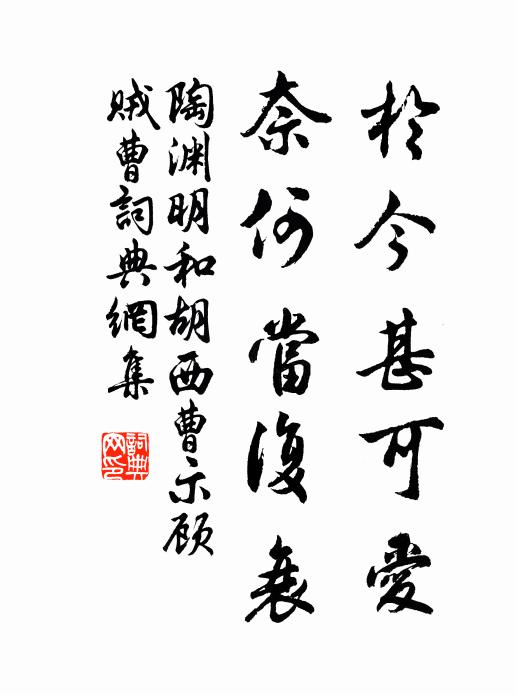 於今甚可愛
奈何當復衰
陶渊明和胡西曹示顾
贼曹詞典網集
詞典网印